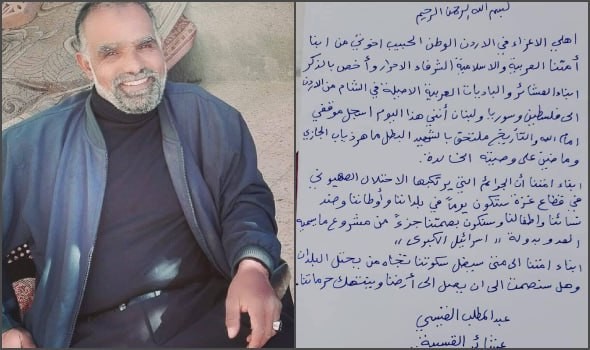 بسم الله الرحمن الرحيم
أهلي الاعزاء في الاردن الوطن الحبيب اخوتي من ابناء
أمتنا العربية والاسلامية الشرفاء الاحرار وأخص بالذكر
ابناء العشائر والباديات العربية الاصيلة في الشام من الاردن
الى فلسطين وسوريا ولبنان أنني هذا اليوم اسجل موقفي
امام الله والتأريخ ملتحق بالشهيد البطل ماهر ذياب الجازي
وماضين على وصيته الخالدة.
ابناء امتنا أن الجرائم التي يرتكبها الاحتلال الصهيوني
في قطاع غزة ستكون يوماً في بلداننا وأوطاننا وضد
نسائنا واطفالنا وستكون بصمتنا جزء من مشروع ما يسميه
العدو بدولة " اسرائيل الكبرى "
ابناء امتنا الى متى سيظل سكوتنا تجاه من يحتل البلدان
وهل سنصمت الى ان يصل الى أرضنا وينتهك حرماتنا.
عبدالمطلب القيسي
عشائر القيسية